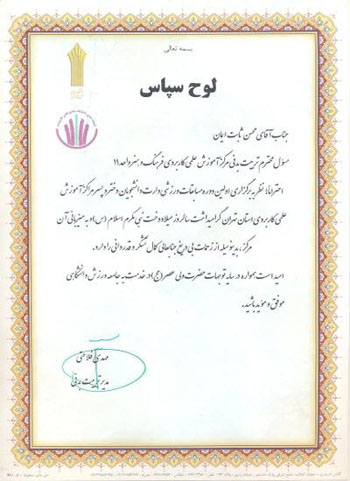 بسمه تعالی
لوح سپاس
جناب آقای محسن ثابت ایمان
مسئول محترم تربیت بدنی مرکز آموزش علمی کاربردی فرهنگ و هنر واحد ۱۱
احتراماً؛ نظر به برگزاری اولین دوره مسابقات ورزشی دارت دانشجویان دختر و پسر مراکز آموزش
علمی کاربردی استان تهران گرامیداشت سالروز میلاد دخت نبی مکرم اسلام (س) و به میزبانی آن
مرکز، بدینوسیله از زحمات بی دریغ جنابعالی کمال تشکر و قدردانی را دارد.
امید است همواره در سایه توجهات حضرت ولی عصر (عج) در خدمت به جامعه ورزش دانشگاهی
موفق و مؤید باشید.
مهدی فلاحتی
مدیر تربیت بدنی